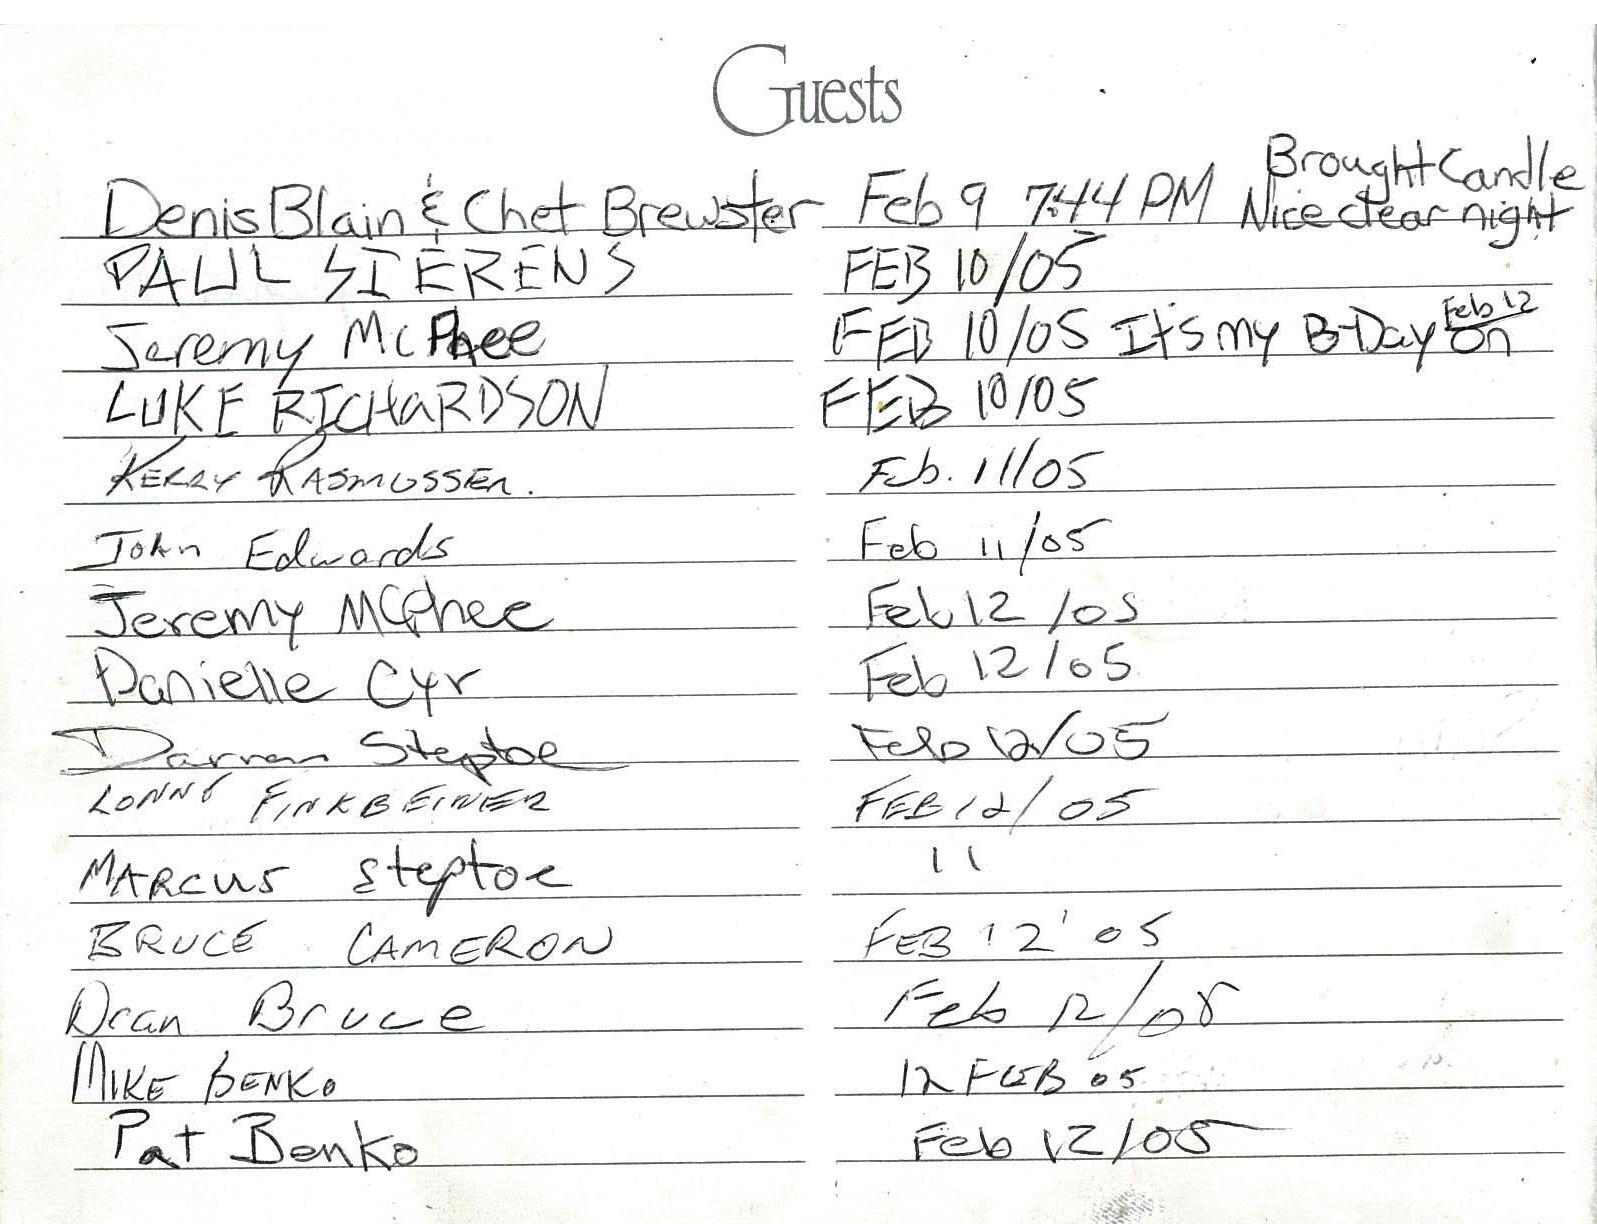 Guests
Denis Blain & Chet Brewster Feb 9 7:44 PM Brought Candle
Nice clear night
PAUL SIERENS FEB 10/05
Jeremy McPhee FEB 10/05 It's my B-Day on Feb 12
LUKE RICHARDSON FEB 10/05
KERRY RASMUSSEN. Feb. 11/05
John Edwards Feb 11/05
Jeremy McPhee Feb 12/05
Danielle Cyr Feb 12/05
Darren Steptoe Feb 12/05
LONNY FINKBEINER FEB 12/05
MARCUS Steptoe 11
BRUCE CAMERON FEB 12'05
Dean Bruce Feb 12/05
MIKE BENKO 12 FEB 05
Pat Benko Feb 12/05